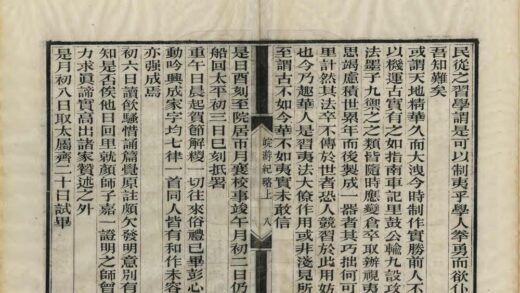 民從之習學謂是可以制夷乎學人拳勇而欲仆
吾知難矣
或謂天地精華久而大洩今時制作實勝前人不
以機運古實有之如指南車記里鼓公輸九設攻
法墨子九禦之之類皆隨時應變倉卒取辦視夷
思竭慮積世累年而後製成一器者其巧拙何可
里計然其法卒不傳於世者恐人競習於此用妨
也今乃趣華人是習夷法大僚作用或非淺見所
至謂古不如今華不如夷實未敢信
皖游紀略上 八
是日酉刻至院居市月襄校事竣午月初二日仍
船回太平初三日巳刻抵署
重午日晨起賀節解糉一切往來俗禮已畢彭心
動吟興成家字均七律一首同人皆有和作未容
亦强成焉
初六日讀飲騷惜誦篇覺原註頗欠發明意別有
知是否俟他日回里就顏師子嘉一證明之師曾
力求眞諦實高出諸家贊述之外
是月初八日取太屬齊二十日試畢